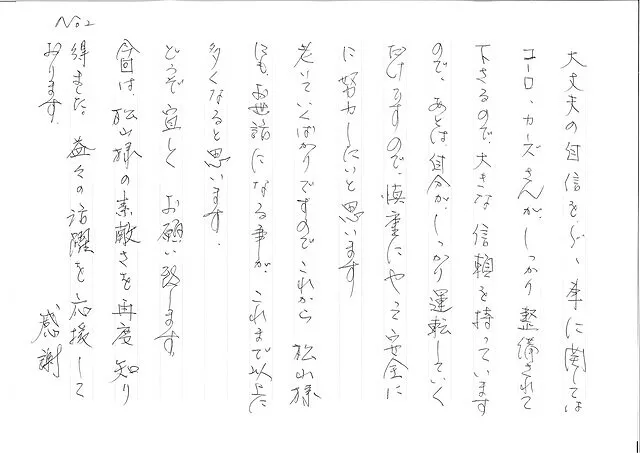 No2
大丈夫の自信を、車に関しては
ユーロ・カーズさんが、しっかり整備されて
下さるので、大きな信頼を持っています
ので、あとは自分が、しっかり運転していく
だけですので、慎重にやって安全に
に努力したいと思います
老いていくばかりですのでこれから松山様
にも、お世話になる事が、これまで以上に
多くなると思います。
どうぞ宜しくお願い致します。
今回は、松山様の素敵さを再度知り
得ました。益々の活躍を応援して
おります。
感謝